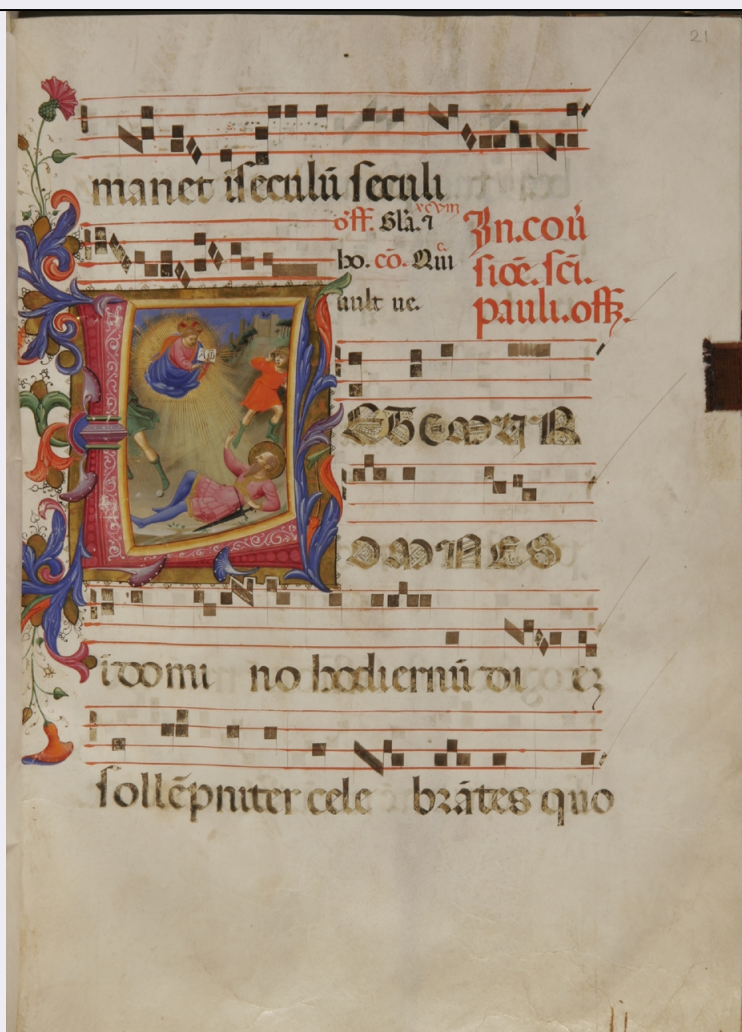 21
manet ī seculū seculi
off. Gl̄a. ⁊ xcviii
ho. cō. Qui c.
uult ue.
In. cōū
siōe. sc̄i.
pauli. off.
LETEMUR
OMNES
ī domi no hodiernū di eȝ
sollēpniter cele brātes quo